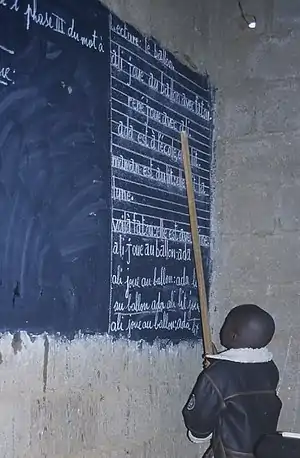 phase III du mot à
Lecture: le ballon
ali joue au ballon avec tata.
rené joue avec ali
ada est à l'école
maman est
lune.
voilà tata: elle est avec
ali joue au ballon: ada
ali joue au ballon: ada l
au ballon ada ali lit joue
ali joue au ballon: ada l